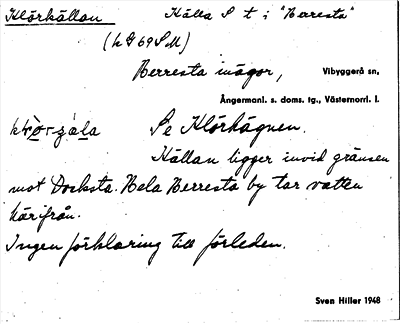 Klörkällan Källa S t; "Berresta"
(k G 69 S M)
Berresta inägor, Vibyggerå sn,
Ångermanl. s. doms. tg., Västernorrl. l.
Se Klörhägnen.
Källan ligger invid gränsen
mot Docksta. Hela Berresta by tar vatten
härifrån.
Ingen förklaring till förleden.
Sven Hiller 1948